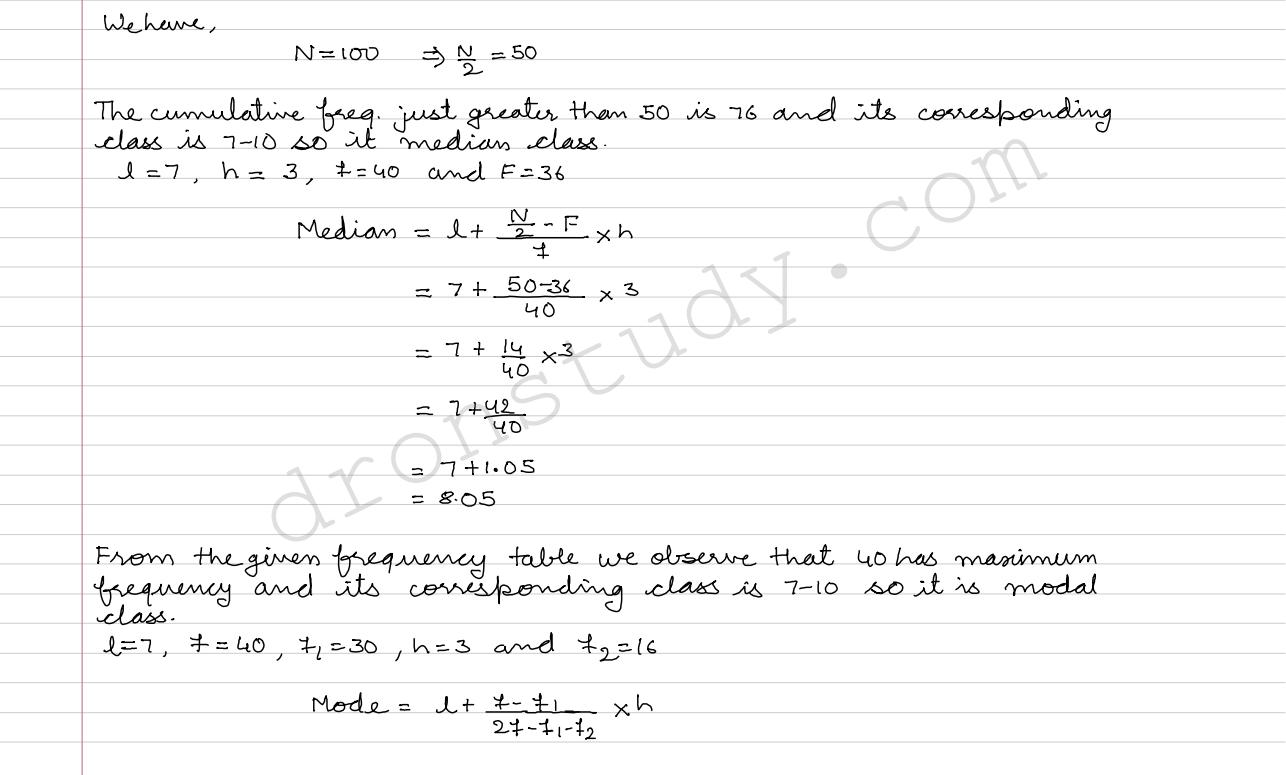 We have,
N=100 ⇒ N/2 = 50
The cumulative freq. just greater than 50 is 76 and its corresponding
class is 7-10 so it median class.
l=7, h= 3, f=40 and F=36
Median = l+ (N/2 - F)/f ×h
= 7+ (50-36)/40 × 3
= 7 + 14/40 ×3
= 7+42/40
= 7+1.05
= 8.05
From the given frequency table we observe that 40 has maximum
frequency and its corresponding class is 7-10 so it is modal
class.
l=7, f=40, f₁=30, h=3 and f₂=16
Mode = l+ (f-f₁)/(2f-f₁-f₂) ×h
dronstudy.com